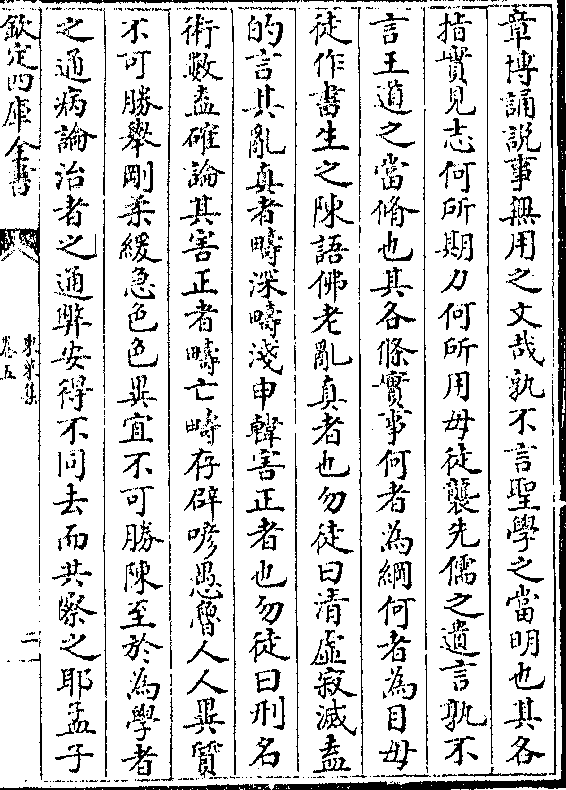 章博誦説事無用之文哉孰不言聖學之當明也其各
指實見志何所期力何所用毋徒襲先儒之遺言孰不
言王道之當脩也其各條實事何者為綱何者為目毋
徒作書生之陳語佛老亂真者也勿徒曰清虛寂滅盍
的言其亂真者疇深疇淺申韓害正者也勿徒曰刑名
術數盍確論其害正者疇亡疇存辟喭愚魯人人異質
不可勝舉剛柔緩急色色異宜不可勝陳至於為學者
之通病論治者之通弊安得不同去而共察之耶孟子
欽定四庫全書
東萊集
卷五
二